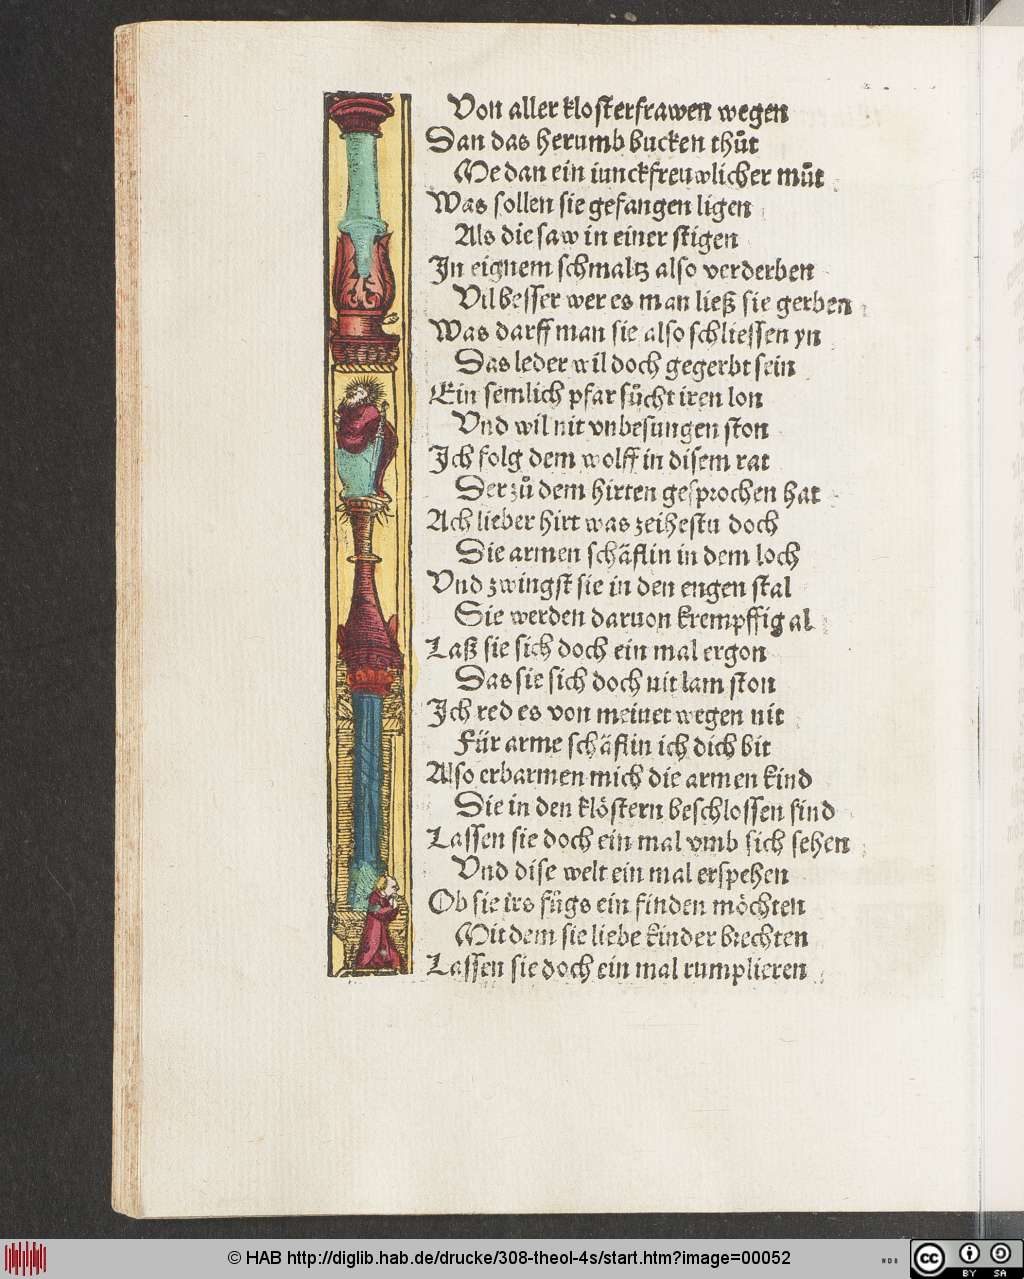 Von aller klosterfrawen wegen
Dan das herumb bucken thůt
Me dan ein iunckfreuwlicher můt
Was sollen sie gefangen ligen
Als die saw in einer stigen
In eignem schmaltz also verderben
Vil besser wer es man ließ sie gerben
Was darff man sie also schliessen yn
Das leder wil doch gegerbt sein
Ein semlich pfar sůcht iren lon
Vnd wil nit vnbesungen ston
Ich folg dem wolff in disem rat
Der zů dem hirten gesprochen hat
Ach lieber hirt was zeihestu doch
Die armen schäflin in dem loch
Vnd zwingst sie in den engen stal
Sie werden daruon krempffig al
Laß sie sich doch ein mal ergon
Das sie sich doch nit lam ston
Ich red es von meinet wegen nit
Für arme schäflin ich dich bit
Also erbarmen mich die armen kind
Die in den klöstern beschlossen sind
Lassen sie doch ein mal vmb sich sehen
Vnd dise welt ein mal erspehen
Ob sie irs fůgs ein finden möchten
Mit dem sie liebe kinder brechten
Lassen sie doch ein mal rumplieren
© HAB http://diglib.hab.de/drucke/308-theol-4s/start.htm?image=00052
WDB
cc BY SA